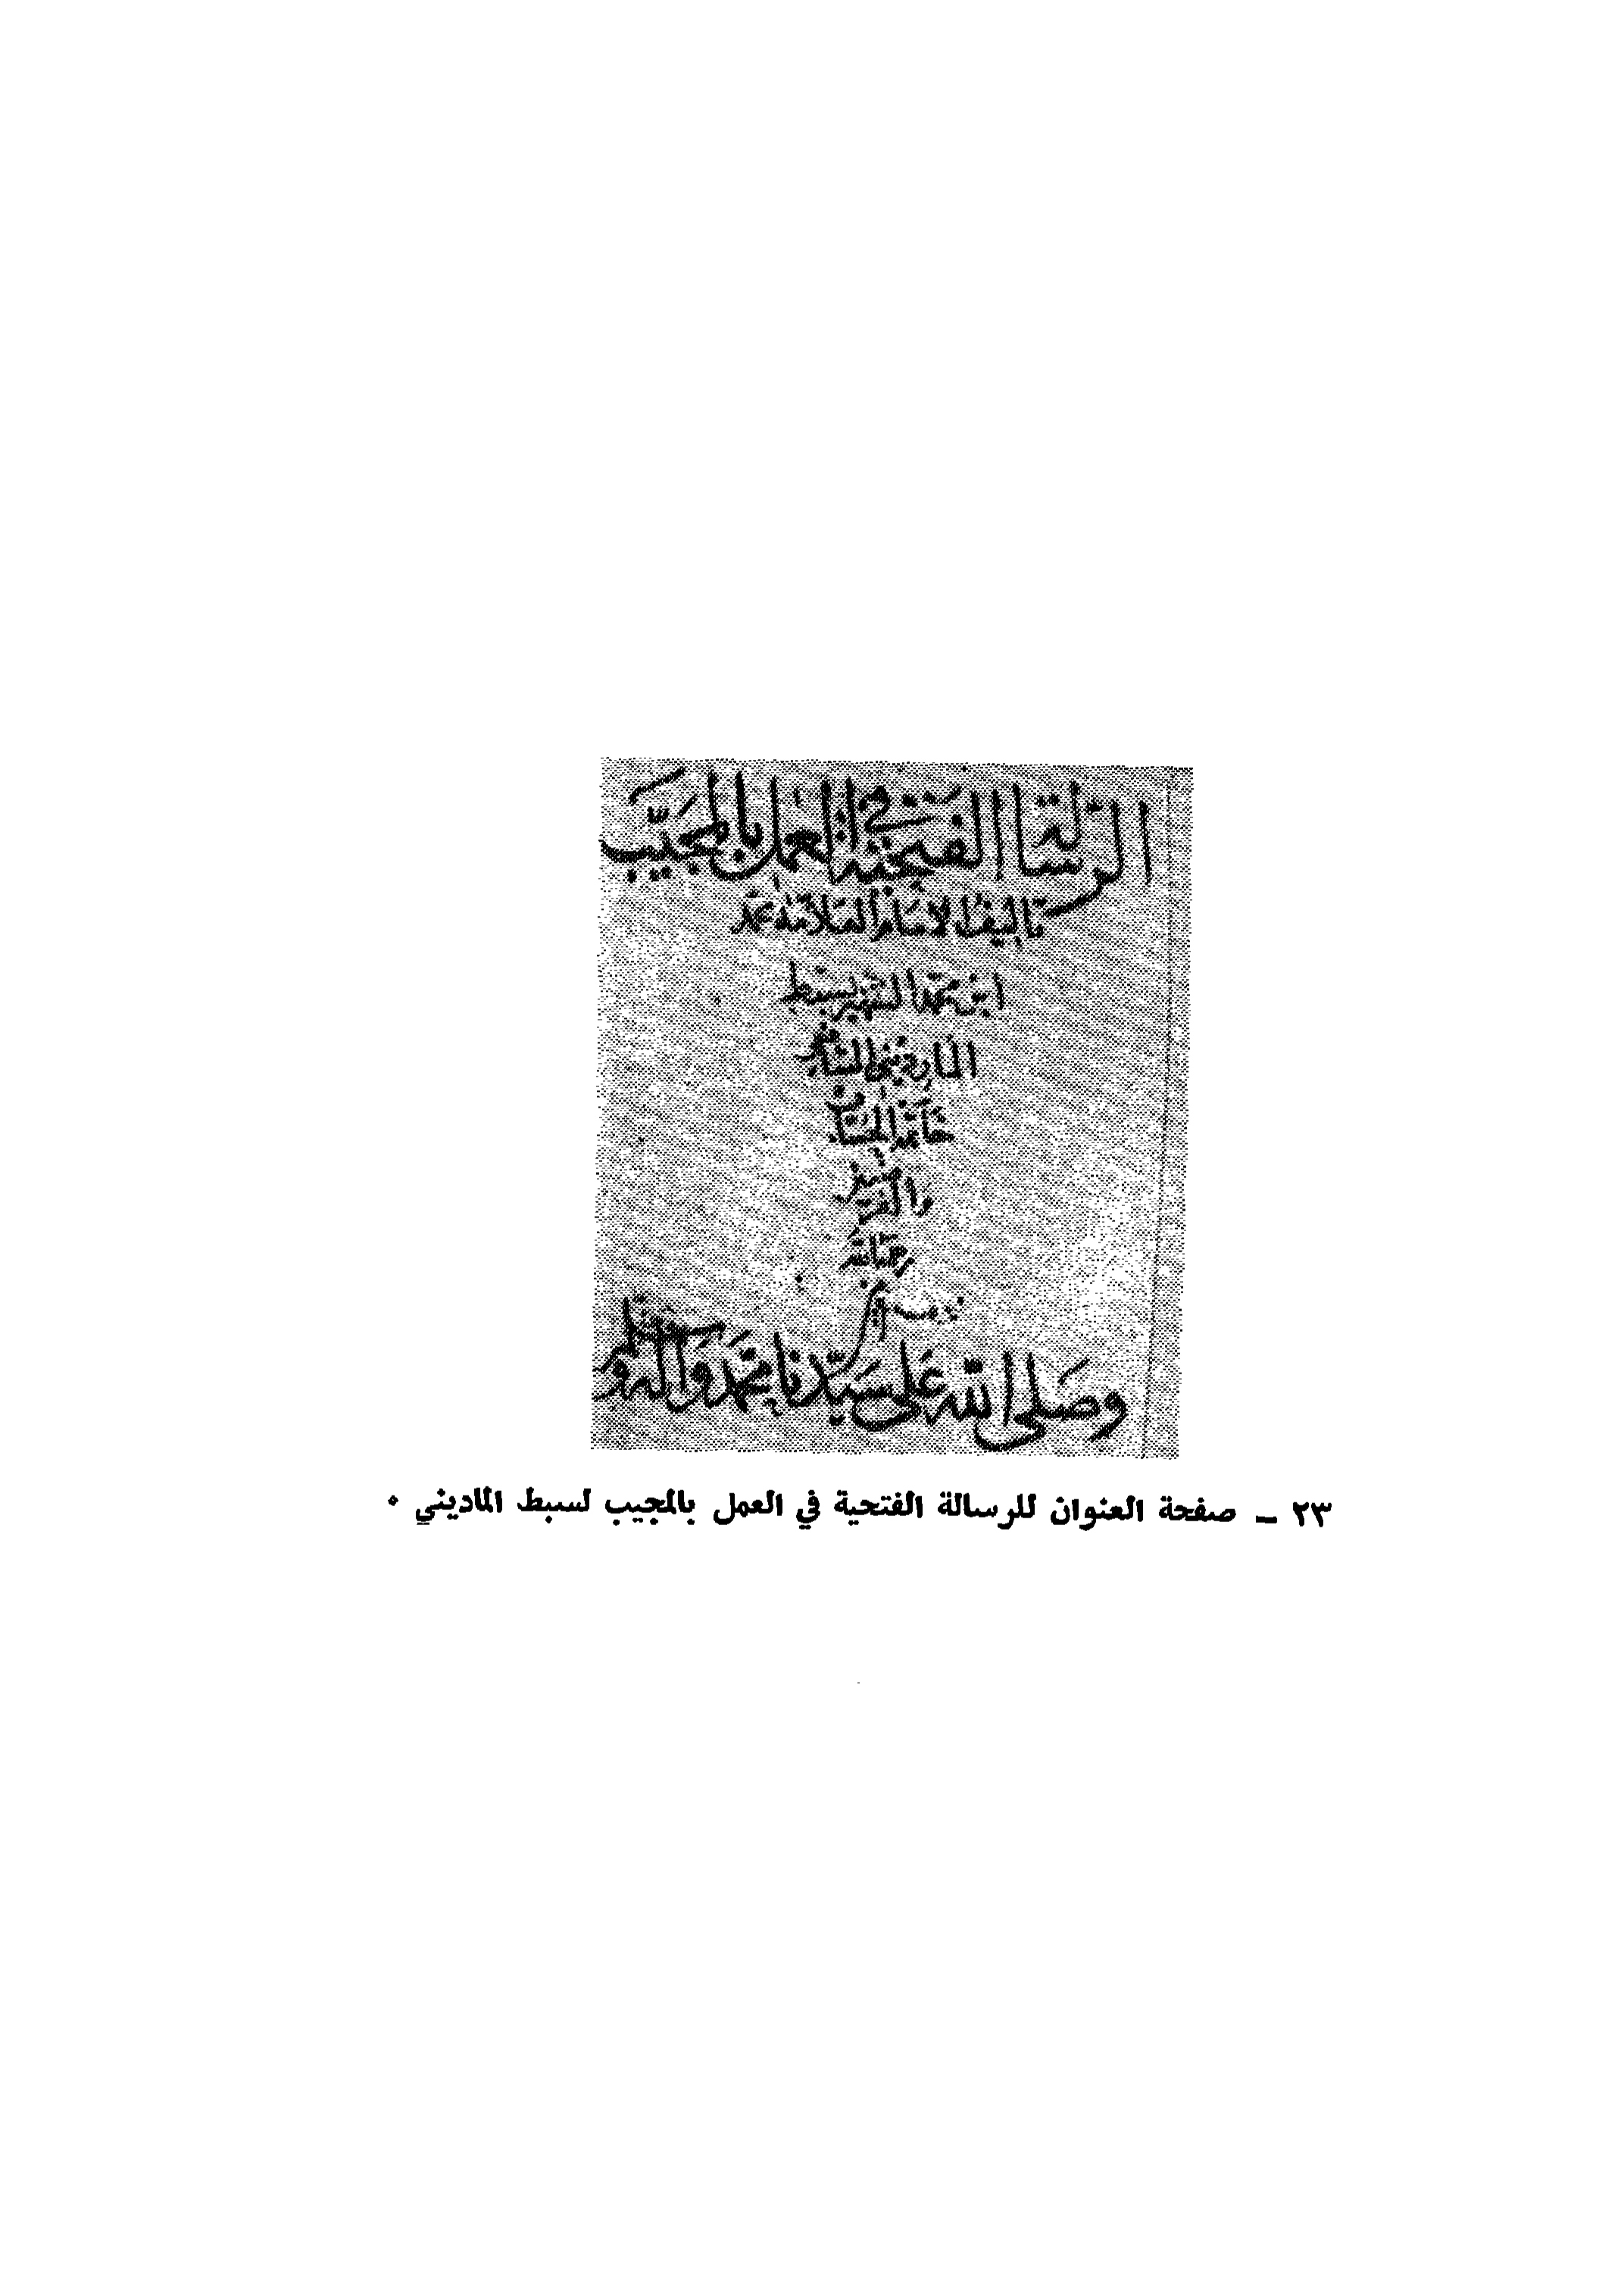 الرسالة الفتحية في العمل بالمجيب
تاليف الامام العلامة محمد
ابن محمد الشهير بسبط
المارديني الشافعي
خاتمة الحساب
والفرضيين
رحمه الله
وصلى الله على سيدنا محمد واله وصحبه وسلم
٢٣ – صفحة العنوان للرسالة الفتحية في العمل بالمجيب لسبط الماديني ٠